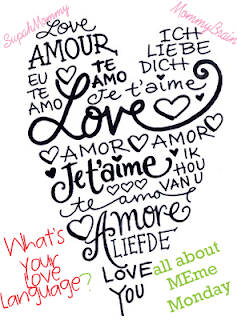 SupahMommy
MommyBrain
Love
AMOUR
ICH
LIEBE
DICH
EU
TE
AMO
TE
AMO
Je t'aime
Love
AMOR
AMOR
Je t'aime
IK
HOU
VAN U
te amo
Amore
LIEFDE
LOVE
YOU
What's
your
love
Language?
all about
MEme
Monday